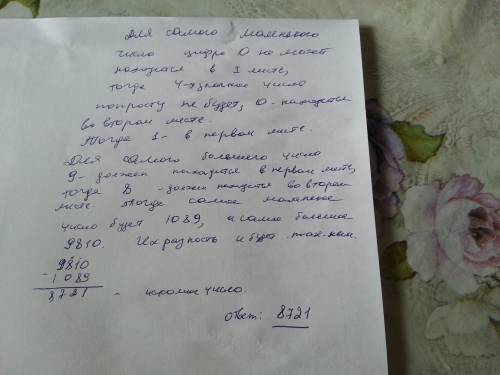 Для самого маленького
число цифра 0 не может
находится в 1 месте,
тогда 4-х значное число
попросту не будет, 0 - находится
во втором месте.
Тогда 1 - в первом месте.
Для самого большего число
9 - должен находится в первом месте,
тогда 8 - должен находится во втором
месте. Тогда самое маленькое
число будет 1089, а самое большее
9810. Их разность и будет
9810
- 1089
8721 - число.
ответ: 8721